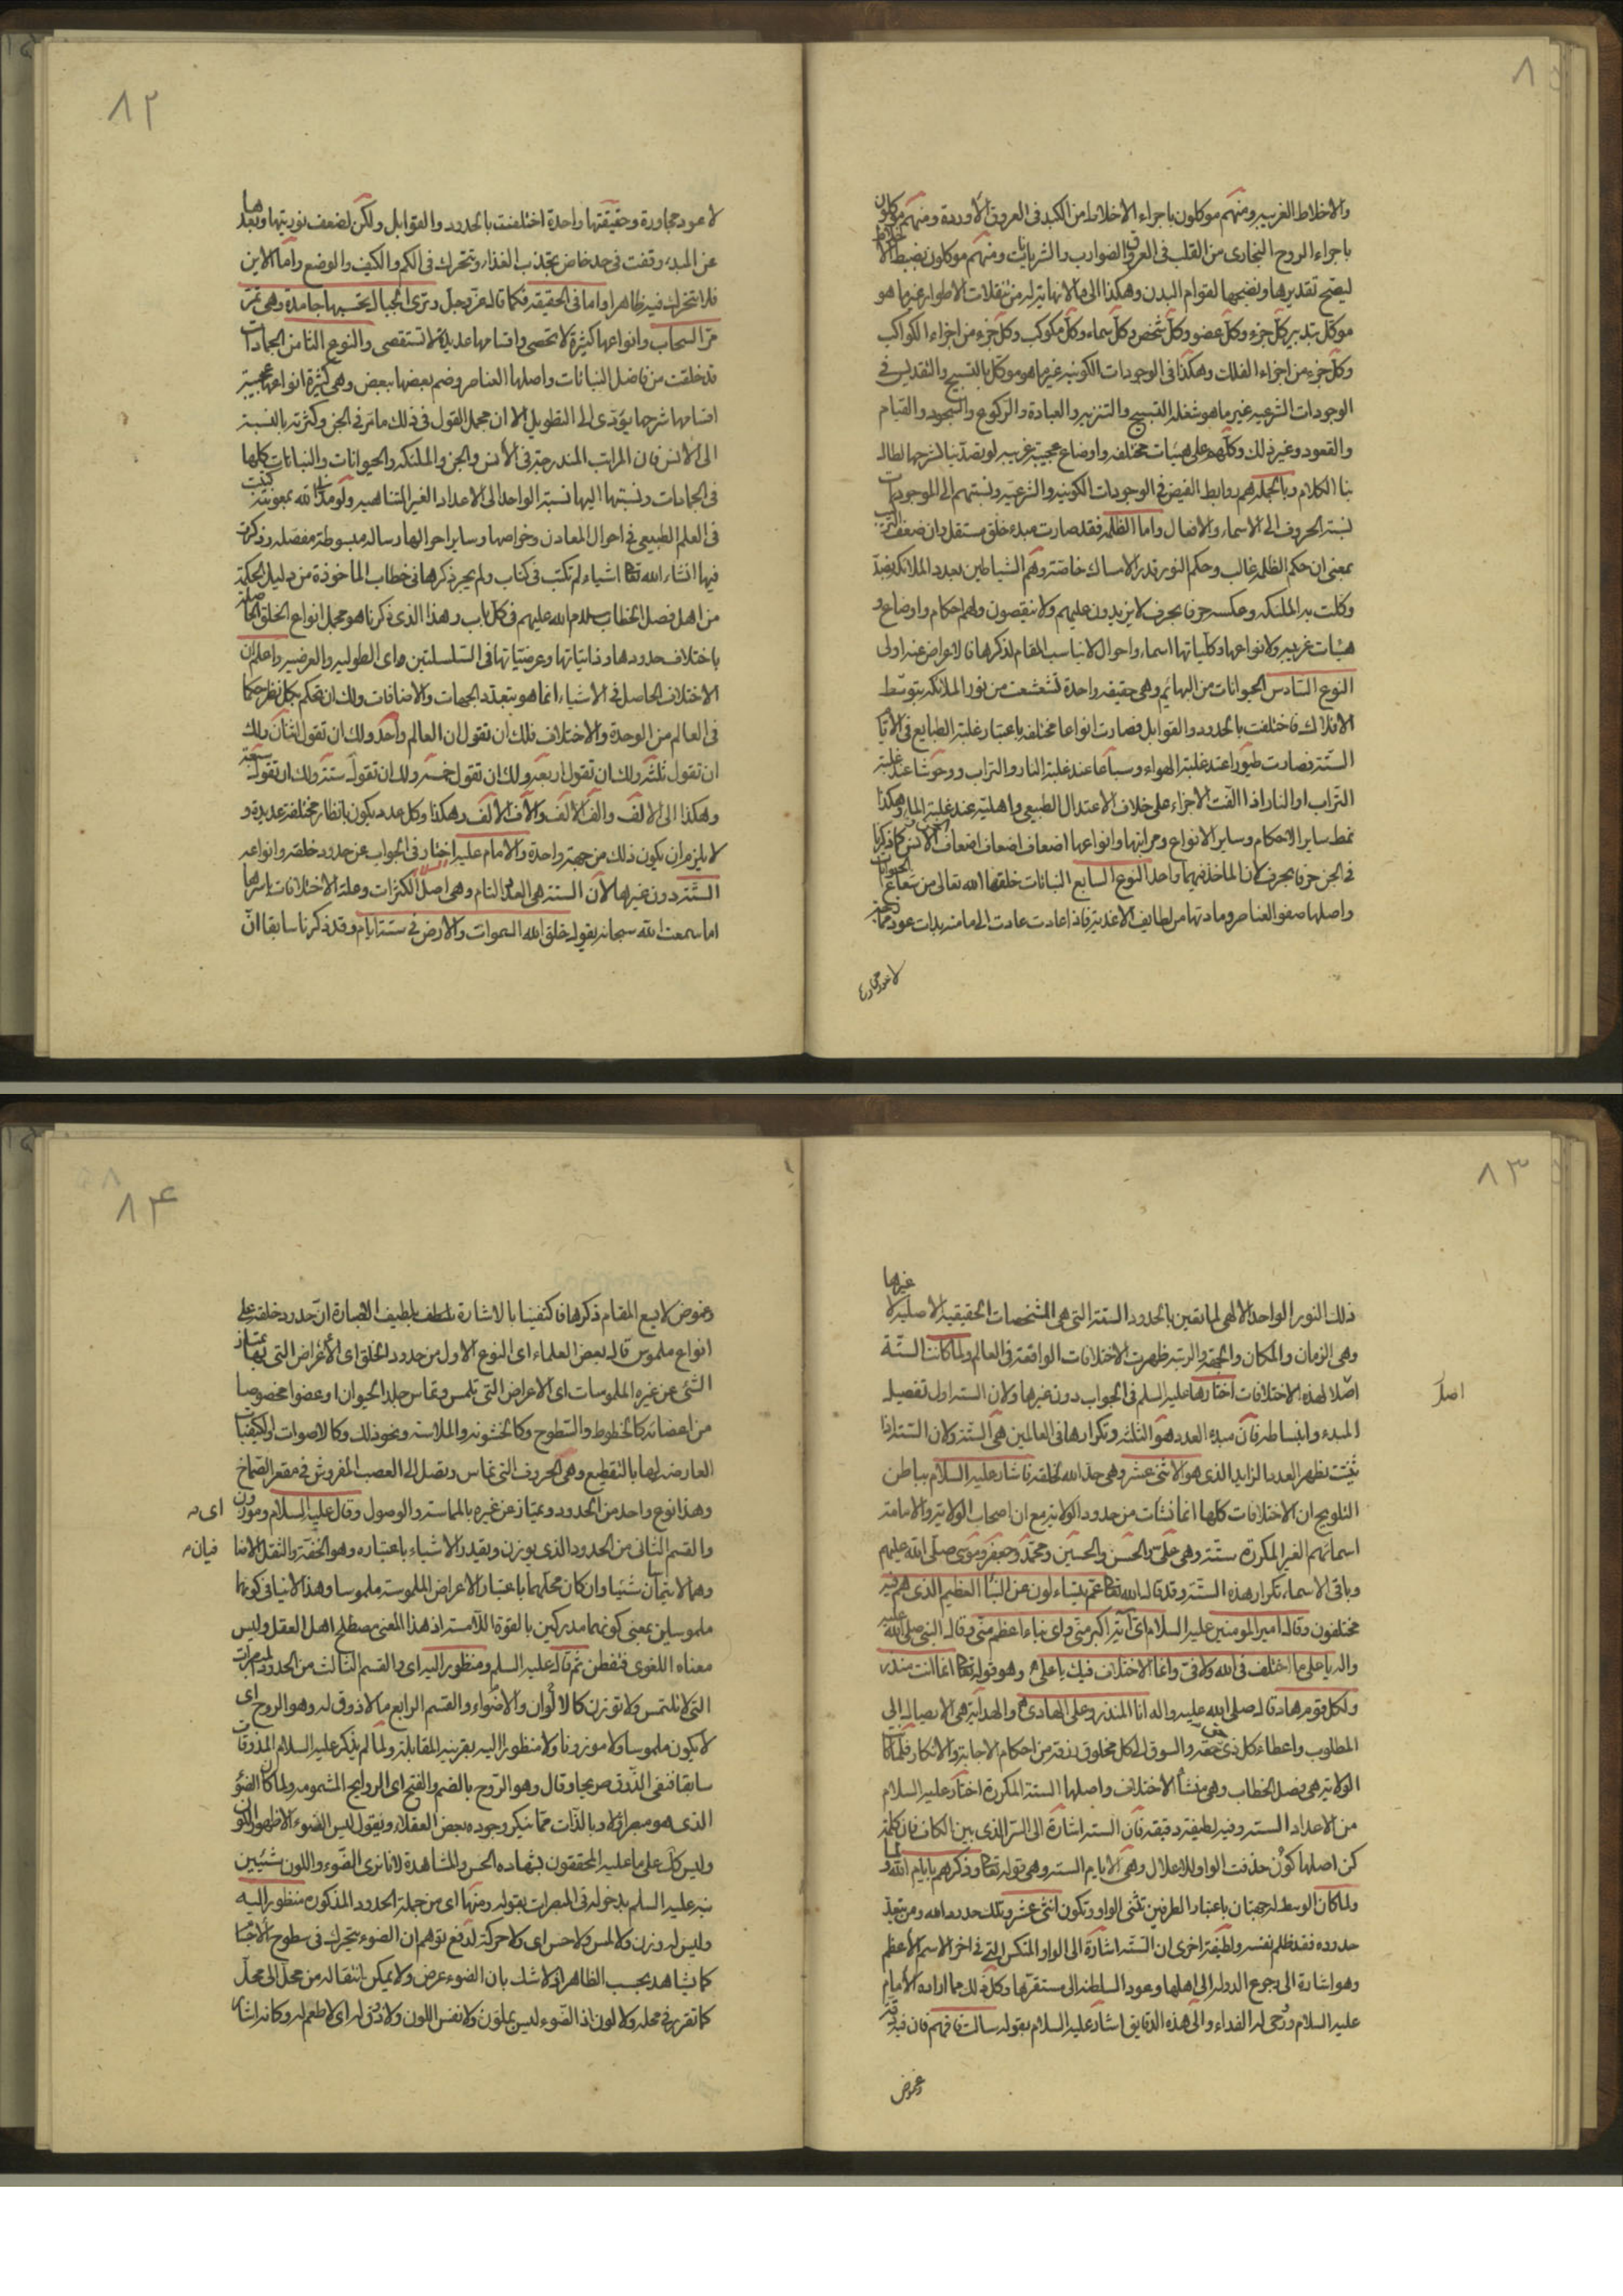 ٨١
والاخلاط الغريبه ومنهم موكلون باجراء الاخلاط من الكبد فى العروق الاوردة ومنهم موكلون
باجراء الروح البخارى من القلب فى العروق الضوارب والشريانات ومنهم موكلون بضبط الاخلاط
ليصح تقديرها ونضجها لقوام البدن وهكذا الى ما لا نهاية له من تنقلات الاطوار غير ما هو
موكل بتدبير كل جزء وكل عضو وكل شخص وكل سماء وكل كوكب وكل جزء من اجزاء الكواكب
وكل جزء من اجزاء الفلك وهكذا فى الوجودات الكونيه غير ما هو موكل بالتسبيح والتقديس فى
الوجودات الشرعيه غير ما هو شغله التسبيح والتنزيه والعبادة والركوع والسجود والقيام
والقعود وغير ذلك وكلهم على هيئات مختلفه واوضاع عجيبة غريبه لو تصدينا لشرحها لطال
بنا الكلام وبالجمله هم روابط الفيض فى الوجودات الكونيه والشرعيه ونسبتهم الى الموجودات
نسبة الحروف الى الاسماء والافعال واما الظلمه فقد صارت مبدء خلق مستقل وان ضعف التركيب
بمعنى ان حكم الظلمه غالب وحكم النور قدر الامساك خاصة وهم الشياطين بعدد الملائكه بضد ما
وكلت به الملئكه وعكسه حرفا بحرف لا يزيدون عليهم ولا ينقصون ولهم احكام واوضاع و
هيئات غريبه ولانواعها وكلياتها اسماء واحوال لا يناسب المقام لذكرها فالاعراض عنه اولى
النوع السادس الحيوانات من البهائم وهى حقيقه واحدة تشعشعت من نور الملائكه بتوسط
الافلاك فاختلفت بالحدود والقوابل فصارت انواعا مختلفه باعتبار غلبة الطبايع فى الايام
الستة فصارت طيورا عند غلبة الهواء وسباعا عند غلبة النار والتراب ووحوشا عند غلبة
التراب او النار اذا الفت الاجزاء على خلاف الاعتدال الطبيعى واهلية عند غلبة الماء وهكذا
نمط ساير الاحكام وساير الانواع ومراتبها وانواعها اضعاف اضعاف اضعاف الانس كما ذكرنا
فى الجن حرفا بحرف لان الماخذ فيهما واحد النوع السابع النباتات خلقها الله تعالى من شعاع الحيوانات
واصلها صفو العناصر ومادتها من لطايف الاغذية فاذا عادت عادت الى ما منه بدات عود ممازجة
لا عود مجاورة
٨٢
لا عود مجاورة وحقيقتها واحدة اختلفت بالحدود والقوابل ولكن لضعف نوريتها وبعدها
عن المبدء وقفت فى حد خاص بجذب الغذاء وتتحرك فى الكم والكيف والوضع واما الاين
فلا تتحرك فيه ظاهرا واما فى الحقيقه فكما قال عز وجل وترى الجبال تحسبها جامدة وهى تمر
مر السحاب وانواعها كثيرة لا تحصى واقسامها عديدة لا تستقصى والنوع الثامن الجمادات
قد خلقت من فاضل النباتات واصلها العناصر وضم بعضها ببعض وهى كثيرة انواعها عجيبة
اقسامها شرحها يؤدى الى التطويل الا ان مجمل القول فى ذلك ما مر فى الجن وكثرته بالنسبة
الى الانس فان المراتب المندرجة فى الانس والجن والملئكه والحيوانات والنباتات كلها
فى الجمادات ونسبتها اليها نسبة الواحد الى الاعداد الغير المتناهيه ولو مد الله بمعونته كتبت
فى العلم الطبيعى فى احوال المعادن وخواصها وساير احوالها رساله مبسوطة مفصله وذكرت
فيها انشاء الله تعالى اشياء لم تكتب فى كتاب ولم يجر ذكرها فى خطاب الماخوذة من دليل الحكمة
من اهل فصل الخطاب سلام الله عليهم فى كل باب وهذا الذى ذكرناه هو مجمل انواع الخلق الحاصلة
باختلاف حدودها وذاتياتها وعرضياتها فى السلسلتين اى الطوليه والعرضيه واعلم ان
الاختلاف الحاصل فى الاشياء انما هو بتعدد الجهات والاضافات ولك ان تحكم بكل نظر حكما
فى العالم من الوحدة والاختلاف فلك ان تقول ان العالم واحد ولك ان تقول اثنان ولك
ان تقول ثلثة ولك ان تقول اربعة ولك ان تقول خمسة ولك ان تقول ستة ولك ان تقول سبعة
وهكذا الى الالف والف الالف والاف الالف وهكذا وكل عدد يكون بانظار مختلفة عديدة و
لا يلزم ان يكون ذلك من جهة واحدة والامام عليه السلام اختار فى الجواب عن حدود خلقه وانواعه
الستة دون غيرها لان الستة هى العدد التام وهى اصل الكثرات وعلة الاختلافات باسرها
اما سمعت الله سبحانه يقول خلق الله السموات والارض فى ستة ايام وقد ذكرنا سابقا ان
٨٣
ذلك النور الواحد الالهى لما تعين بالحدود الستة التى هى المشخصات الحقيقية الاصلية لا غيرها
وهى الزمان والمكان والجهة والرتبه ظهرت الاختلافات الواقعة فى العالم ولما كانت الستة
اصلا لهذه الاختلافات اختارها عليه السلم فى الجواب دون غيرها ولان الستة اول تفصيل
اصل
المبدء وانبساطه فان مبدء العدد هو الثلثه وتكرارها فى العالمين هى الستة ولان الستة اذا
ثنيت تظهر العدد الزايد الذى هو الاثنى عشر وهى حد الله لخلقه فاشار عليه السلام بباطن
التلويح ان الاختلافات كلها انما نشات من حدود الولاية مع ان اصحاب الولاية والامامة
اسمائهم الغير المكررة ستة وهى على والحسن والحسين ومحمد وجعفر وموسى صلى الله عليهم
وباقى الاسماء تكرار هذه الستة وقد قال الله تعالى عم يتساءلون عن النبأ العظيم الذى هم فيه
مختلفون وقال امير المومنين عليه السلام اى آية اكبر منى واى نباء اعظم منى وقال النبى صلى الله عليه
واله يا على ما اختلف فى الله ولا فى وانما الاختلاف فيك يا على وهو قوله تعالى انما انت منذر
ولكل قوم هاد قال صلى الله عليه واله انا المنذر وعلى الهادى والهداية هى الايصال الى
المطلوب واعطاء كل ذى حق حقه والسوق الى كل مخلوق رزقه من احكام الاجابة والانكار فلما كان
الولاية هى فصل الخطاب وهى منشأ الاختلاف واصلها الستة المكررة اختار عليه السلام
من الاعداد الستة وفيه لطيفة دقيقه فان الستة اشارة الى السر الذى بين الكاف فان كلمة
كن اصلها كون حذفت الواو للاعلال وهى الايام الستة وهى قوله تعالى وذكرهم بايام الله و
ولما كان الوسط له جهتان باعتبار الطرفين تثنى الواو وتكون اثنى عشر وتلك حدود الله ومن يتعد
حدوده فقد ظلم نفسه ولطيفة اخرى ان الستة اشارة الى الواو المنكس التى فى اخر الاسم الاعظم
وهو اشارة الى رجوع الدولة الى اهلها وعود السلطنة الى مستقرها وكل ذلك مما اراده الامام
عليه السلام وروحى له الفداء والى هذه الدقايق اشار عليه السلام بقوله سالت فافهم فان فيه دقة
وغموض
٨٤
وغموض لا يسع المقام ذكرها فاكتفينا بالاشارة بلطف لطيف العبارة ان حدود خلقه على
انواع ملموس قال بعض العلماء اى النوع الاول من حدود الخلق اى الاعراض التى بها يمتاز
الشئ عن غيره الملموسات اى الاعراض التى تلمس وتماس جلد الحيوان او عضوا مخصوصا
من اعضائه كالخطوط والسطوح وكالخشونه والملاسة ونحو ذلك وكالاصوات والكيفيات
العارضه لها بالتقطيع وهى الحروف التى تماس وتصل الى العصب المفروش فى مقعر الصماخ
وهذا نوع واحد من الحدود ويمتاز عن غيره بالمماسة والوصول وقال عليه السلام وموزون
اى
والقسم الثانى من الحدود الذى يوزن ويقدر الاشياء باعتباره وهو الخفة والثقل الاضا
فيان
وهما لا يتمان شيئا وان كان محلهما باعتبار الاعراض الملموسة ملموسا وهذا لا ينافى كونهما
ملموسين بمعنى كونهما مدركين بالقوة اللامسة اذ هذا المعنى مصطلح اهل العقل وليس
معناه اللغوى فتفطن ثم قال عليه السلم ومنظور اليه اى والقسم الثالث من الحدود المبصرات
التى لا تلتمس ولا توزن كالالوان والاضواء والقسم الرابع ما لا ذوق له وهو الروح اى
لا يكون ملموسا ولا موزونا ولا منظورا اليه بقرينة المقابلة ولما لم يذكر عليه السلام المذوقات
سابقا فنفى الذوق صريحا وقال وهو الروح بالضم والفتح اى الروايح المشمومه ولما كان الضوء
الذى هو مبصر اولا وبالذات مما ينكر وجوده بعض العقلاء ويقول ليس الضوء الا ظهور اللون
وليس كك على ما عليه المحققون بشهادة الحس والمشاهدة لانا نرى الضوء واللون شيئين
نبه عليه السلم بدخوله فى المبصرات بقوله ومنها اى من جملة الحدود المذكوره منظور اليه
وليس له وزن ولا لمس ولا حس اى ولا حركة لدفع توهم ان الضوء يتحرك فى سطوح الاجسام
كما يشاهد بحسب الظاهر اذ لا شك بان الضوء عرض ولا يمكن انتقاله من محل الى محل
كما تقرر فى محله ولا لون اذ الضوء ليس بملون ولا نفس اللون ولا ذوق له اى لا طعم له وكانه اشار